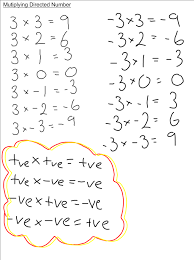 Multiplying Directed Number
3 × 3 = 9
3 × 2 = 6
3 × 1 = 3
3 × 0 = 0
3 × -1 = -3
3 × -2 = -6
3 × -3 = -9
-3 × 3 = -9
-3 × 2 = -6
-3 × 1 = -3
-3 × 0 = 0
-3 × -1 = 3
-3 × -2 = 6
-3 × -3 = 9
+ve × +ve = +ve
+ve × -ve = -ve
-ve × +ve = -ve
-ve × -ve = +ve